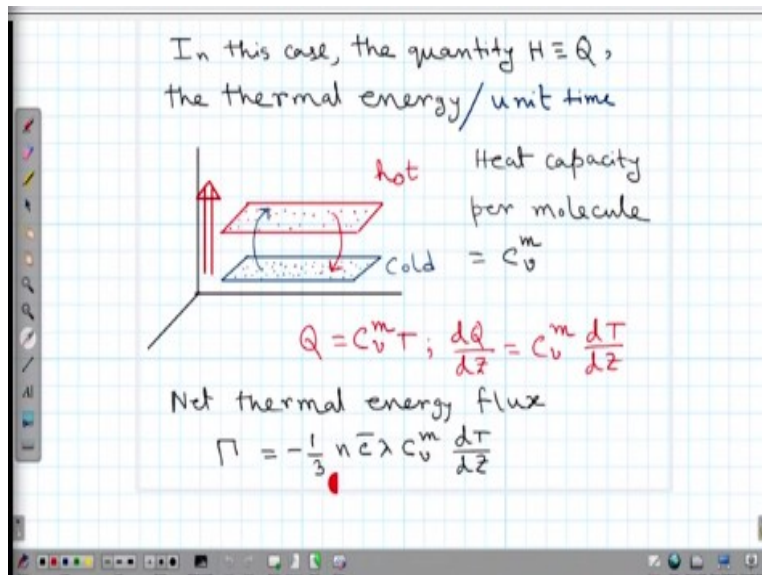 In this case, the quantity H ≡ Q,
the thermal energy/unit time
hot
Heat capacity
per molecule
cold
= C_v^m
Q = C_v^m T ; dQ/dZ = C_v^m dT/dZ
Net thermal energy flux
Γ = -1/3 n c̄ λ C_v^m dT/dZ